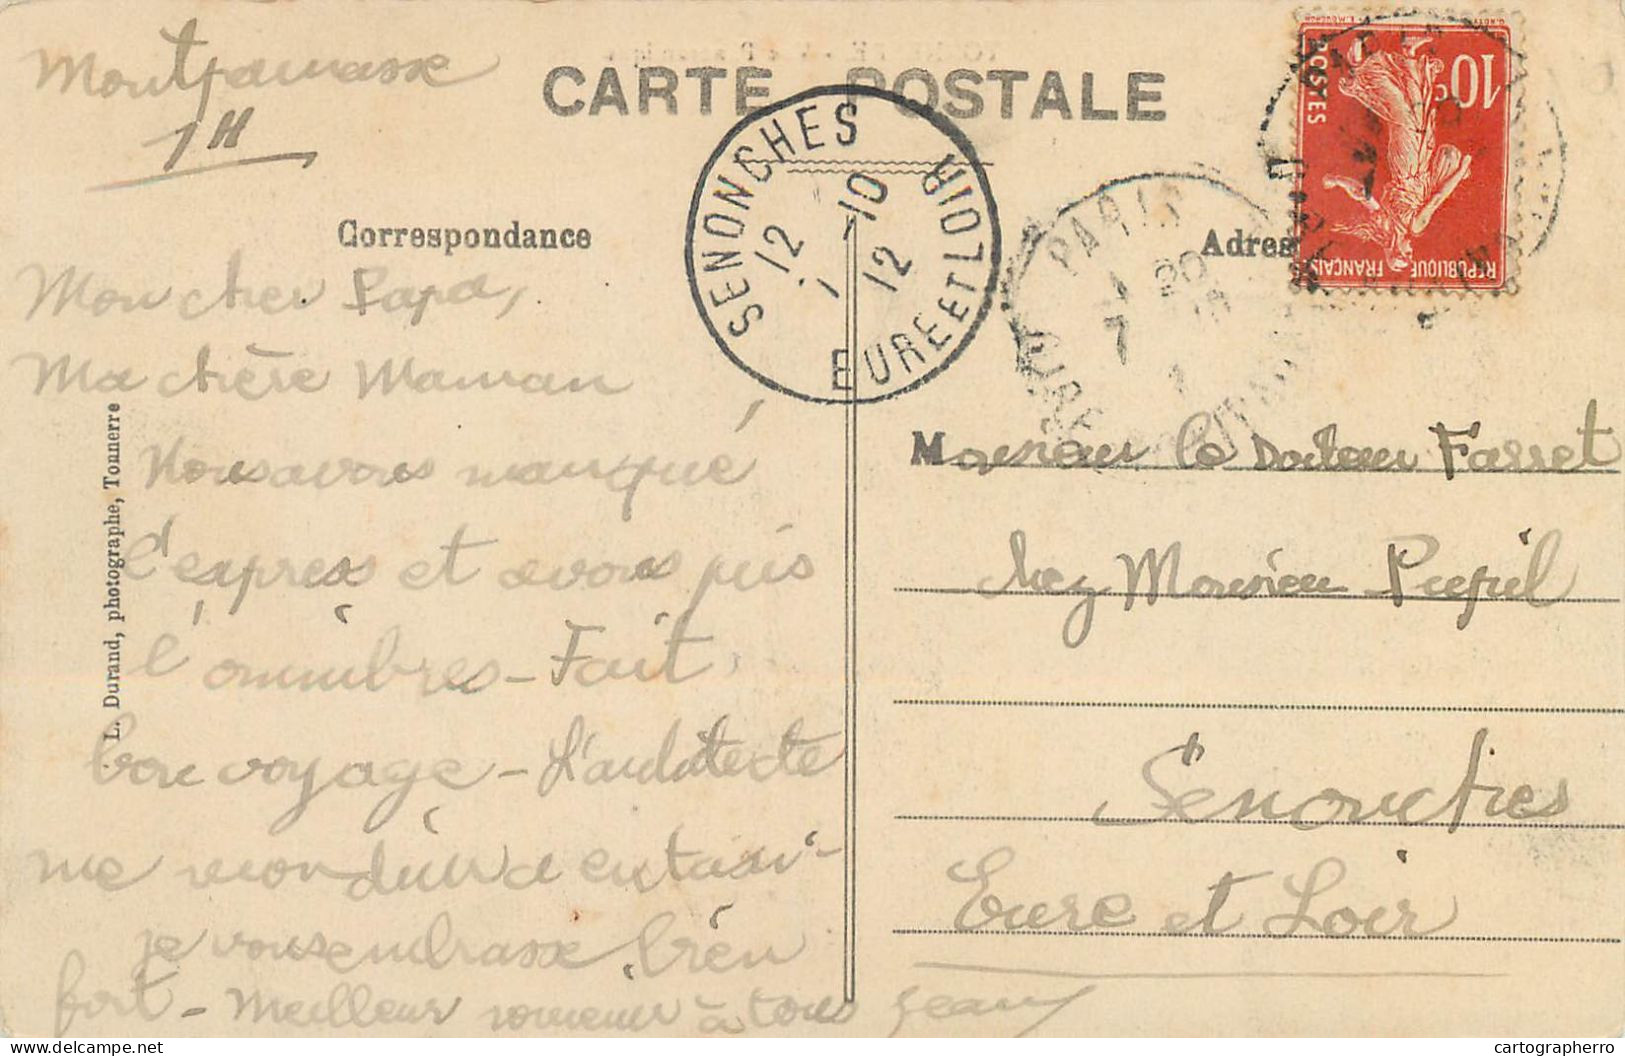 Montparnasse
1H
CARTE POSTALE
Correspondance
Adres
SENONCHES
EURE ET LOIR
12 -10
7 12
PARIS
7 20
10c
POSTES
REPUBLIQUE FRANÇAISE
Mon cher Papa,
Ma chère Maman
Nous avons manqué
l'express et avons pris
l'omnibus - Fait
bon voyage - L'architecte
me viendra en taxi -
je vous embrasse bien
fort - Meilleur souvenir à tous Jean
Monsieur le Docteur Farret
chez Monsieur Pupil
Senonches
Eure et Loir
L. Durand, photographe, Tonnerre
cartographerro